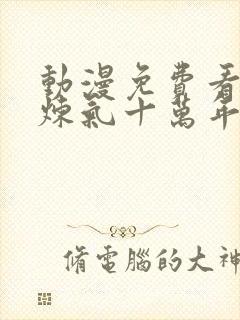 動漫免費看
煉氣十萬年
脩電腦的大神